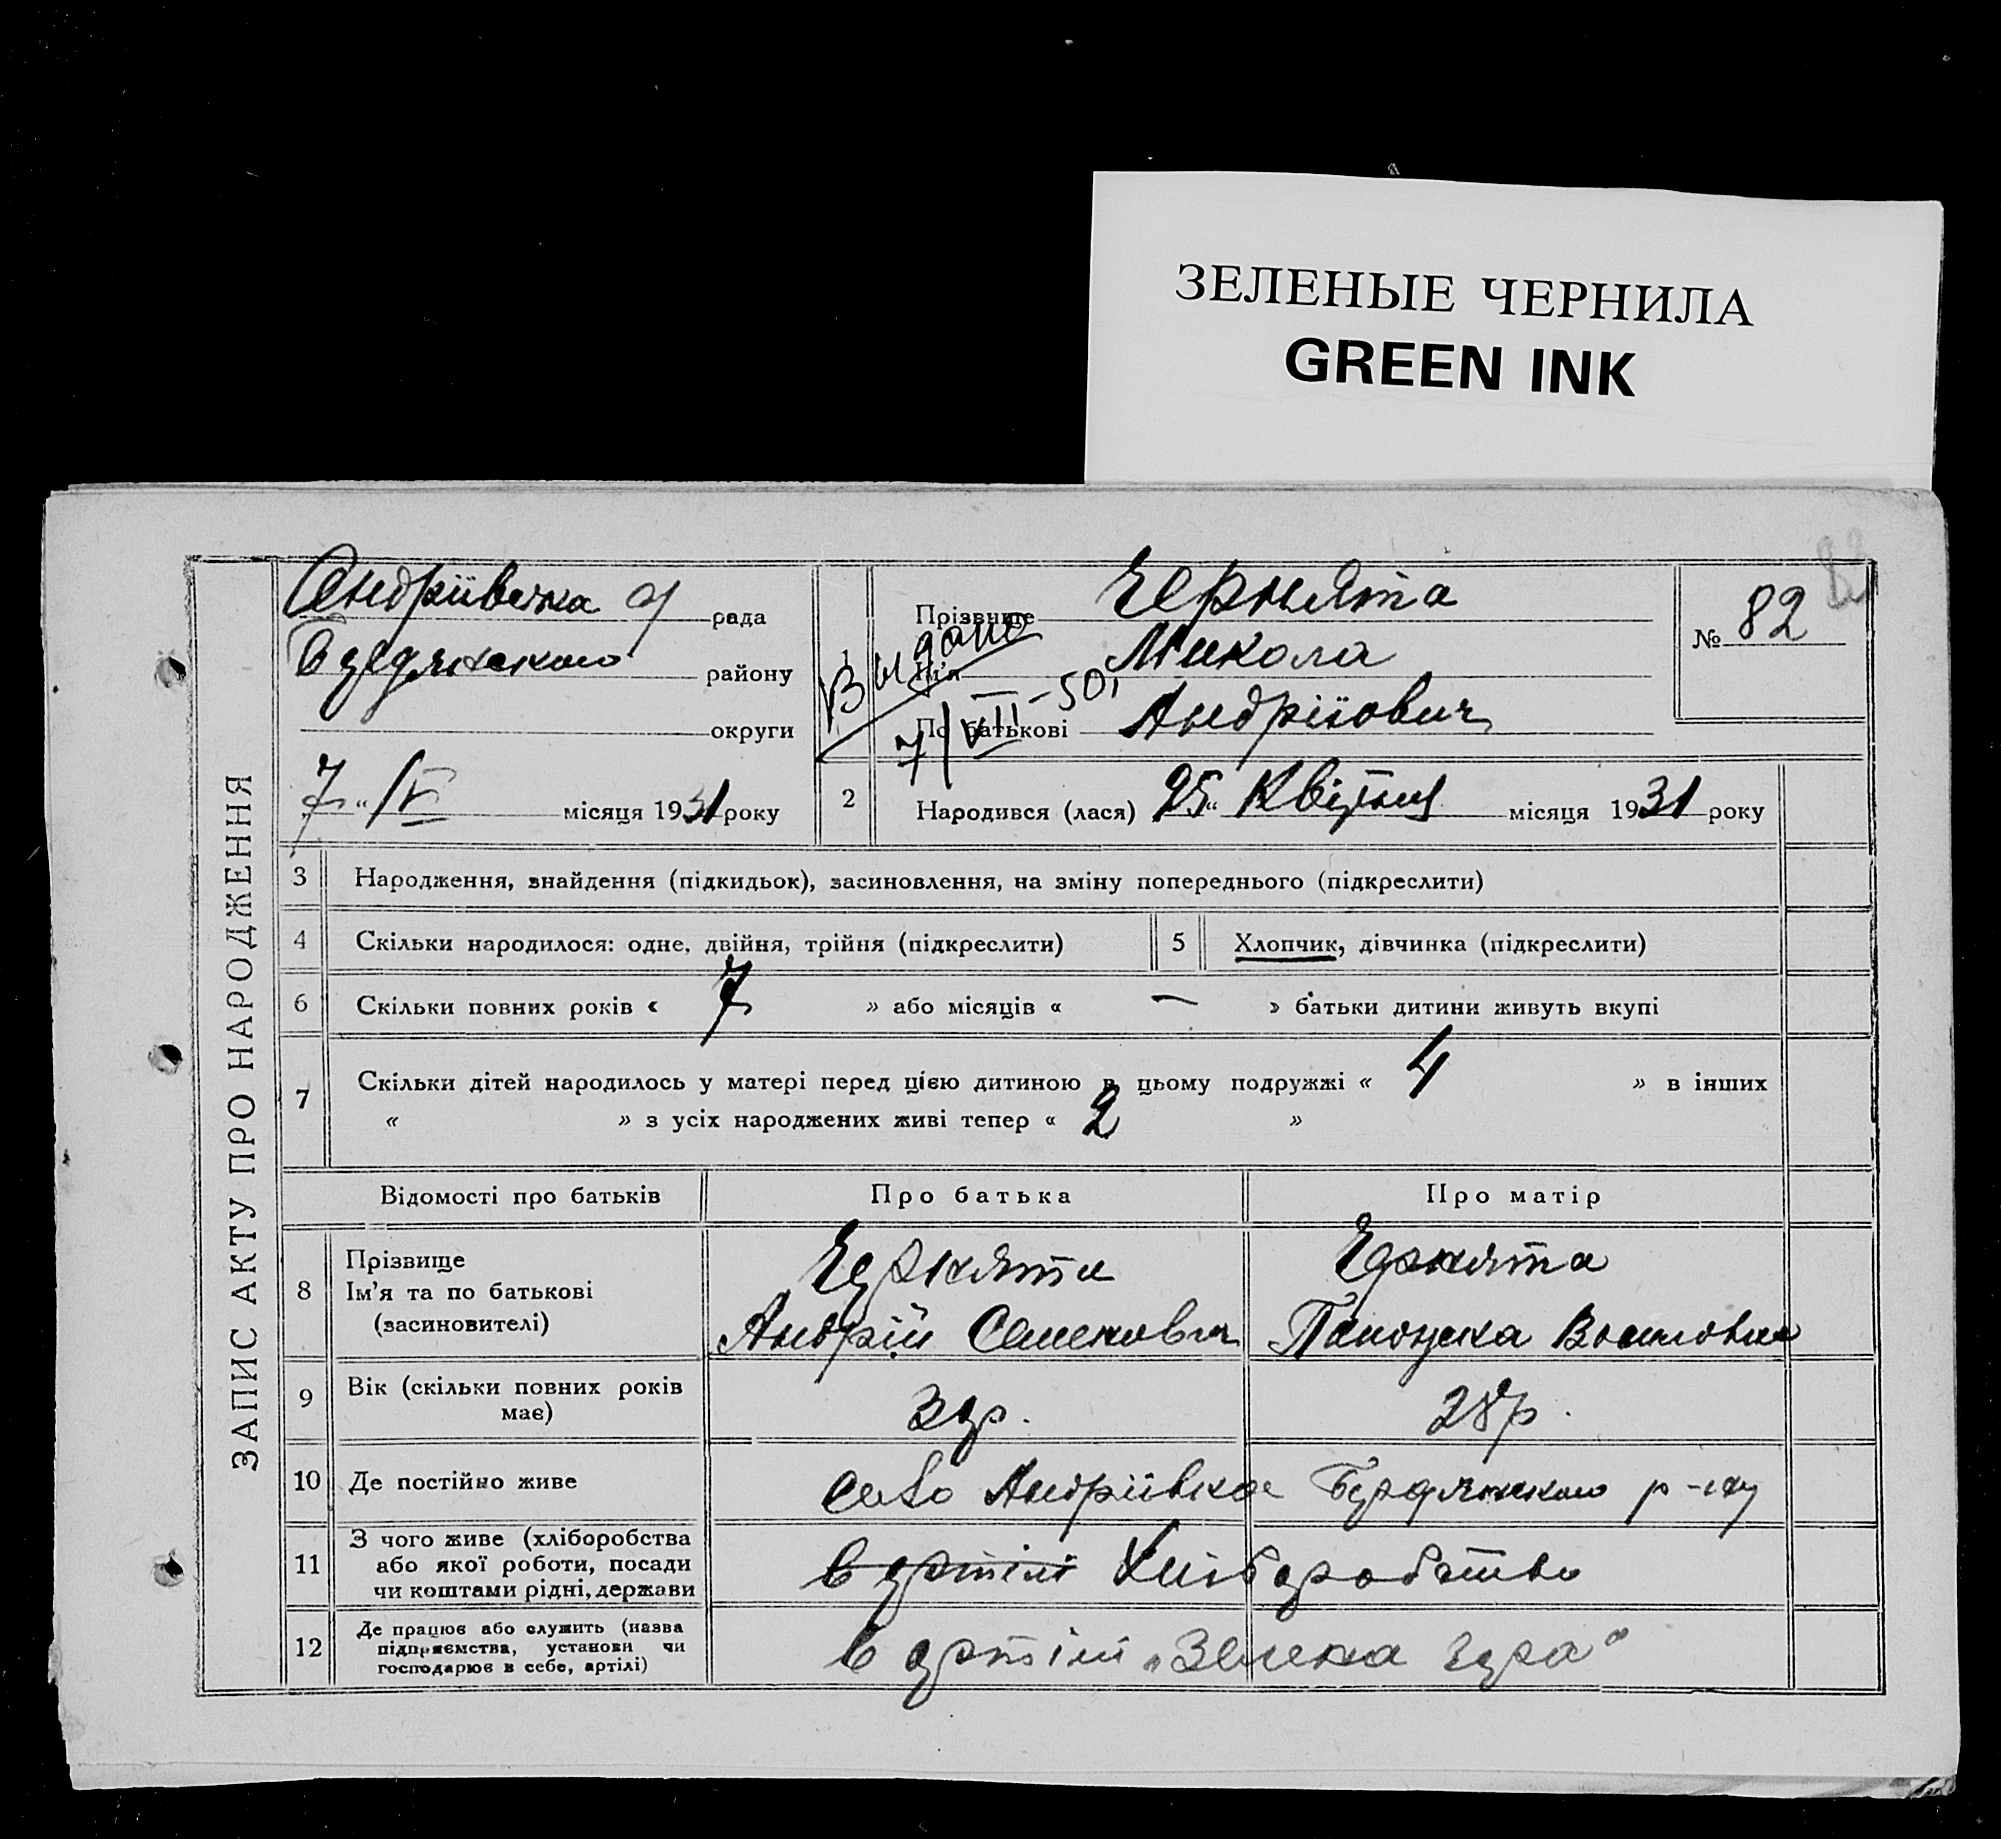 ЗЕЛЕНЫЕ ЧЕРНИЛА
GREEN INK
ЗАПИС АКТУ ПРО НАРОДЖЕННЯ
Андріївська с/рада
Бердянського району
округи
7 " IV місяця 1931 року
1
Прізвище Чернята
Ім'я Микола
По батькові Андрійович
Выдано
7/VII-50
№ 82
82
2 Народився (лася) 25 " Квітня місяця 1931 року
3 Народження, знайдення (підкидьок), засиновлення, на зміну попереднього (підкреслити)
4 Скільки народилося: одне, двійня, трійня (підкреслити) 5 Хлопчик, дівчинка (підкреслити)
6 Скільки повних років « 7 » або місяців « — » батьки дитини живуть вкупі
7 Скільки дітей народилось у матері перед цією дитиною в цьому подружжі « 4 » в інших
« » з усіх народжених живі тепер « 2 »
Відомості про батьків Про батька Про матір
8 Прізвище Ім'я та по батькові (засновителі)
Чернята Чернята
Андрій Семенович
9 Вік (скільки повних років має) 28р.
10 Де постійно живе село Андріївка Бердянського р-ну
11 З чого живе (хліборобства або якої роботи, посади чи коштами рідні, держави
в артілі Хліборобство
12 Де працює або служить (назва підприємства, установи чи господарює в себе, артілі)
в артілі „Зелена